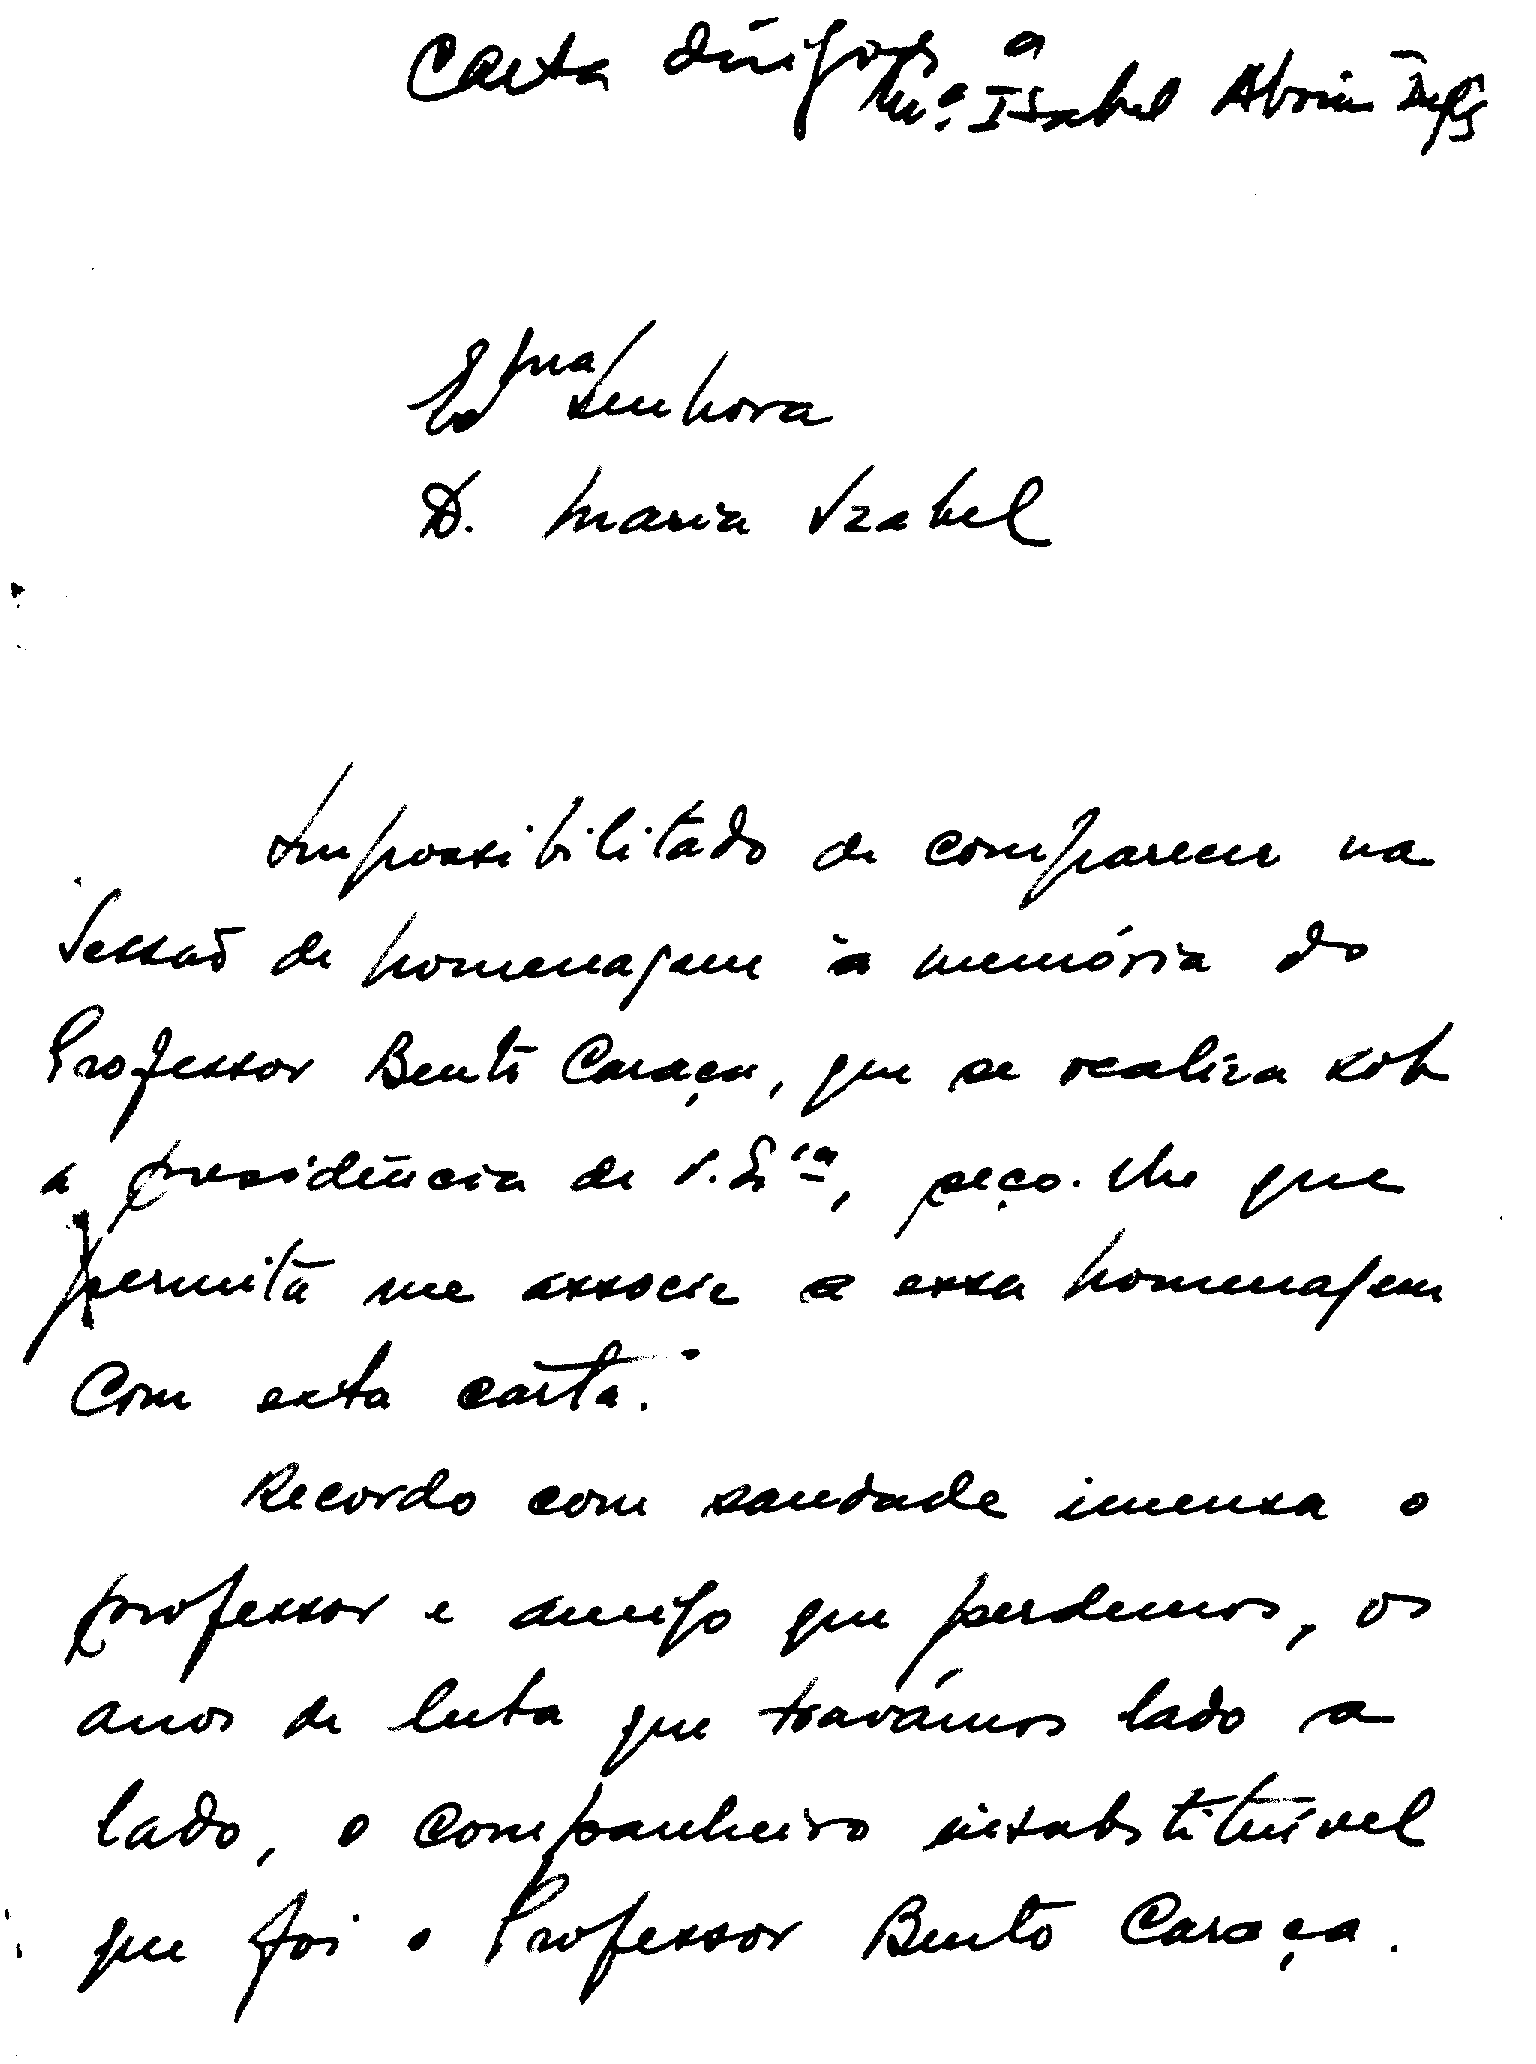 Carta dirigida a
Mª. Isabel Aboim Inglês
Exma Senhora
D. Maria Izabel
Impossibilitado de comparecer na
Sessão de homenagem à memória do
Professor Bento Caraça, que se realiza sob
a presidência de V. Ex.cia, peço-lhe que
permita me associe a essa homenagem
com esta carta.
Recordo com saudade imensa o
professor e amigo que perdemos, os
anos de luta que travámos lado a
lado, o companheiro insubstituível
que foi o Professor Bento Caraça.